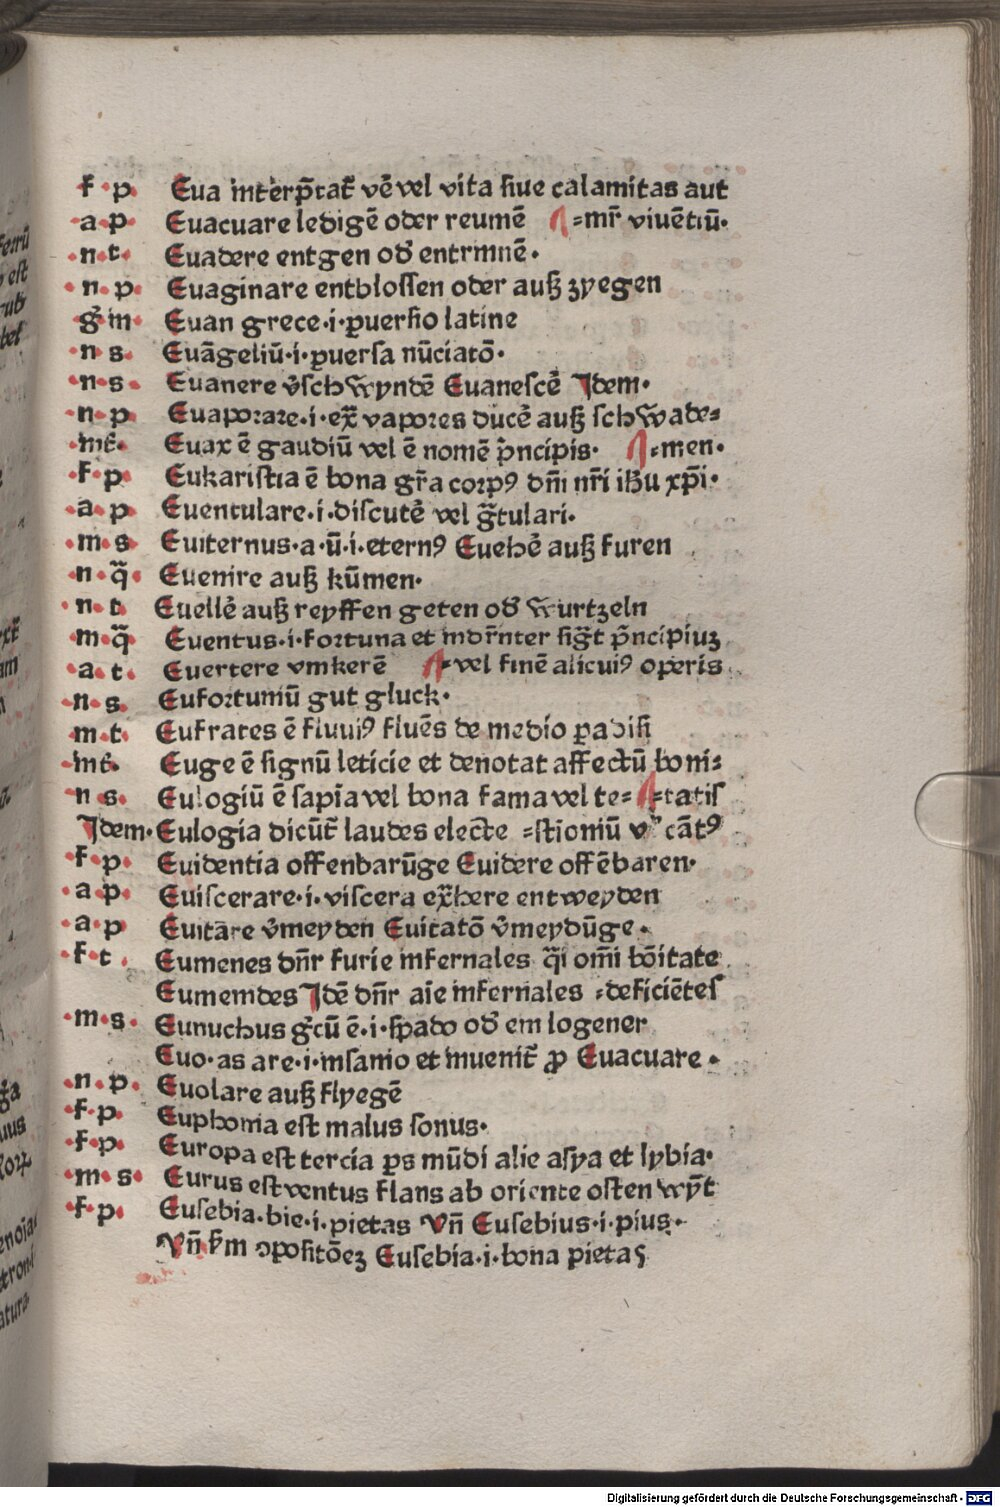 f p Eua interp̄tat̄ vē vel vita siue calamitas aut
·a·p· Euacuare ledigē oder reumē =mr̄ viuētiū·
·n·t· Euadere entgen od̛ entrinnē·
·n·p· Euaginare entblossen oder auß zyegen
g̛·m· Euan grece·i·puersio latine
·n·s· Euāgeliū·i·puersa nūciatō·
·n·s· Euanere v̛schwyndē Euanescē Idem·
·n·p Euaporare·i·ex̄ vapores ducē auß schwade=
·int̄· Euax ē gaudiū vel ē nomē p̄ncipis· =men·
·f·p· Eukaristia ē bona gr̄a corpꝰ dn̄i nr̄i ihū xp̄i·
·a·p· Euentulare·i·discutē vel g̃tulari·
·m·s· Euiternus·a·ū·i·eternꝰ Euehē auß furen
·n·q̄· Euenire auß kūmen·
·n·t· Euellē auß reyffen geten od̛ wurtzeln
·m·q̄· Euentus·i·fortuna et
·a·t· Euertere vmkerē =vel finē alicuiꝰ operis
·n·s· Eufortuniū gut gluck·
·m·t· Eufrates ē fluuiꝰ fluēs de medio padisi
·int̄· Euge ē signū leticie et denotat affectū boni=
·n·s· Eulogiū ē sapīa vel bona fama vel te= =tatis
Idem· Eulogia dicūt̄ laudes electe =stioniū cātꝰ
·f·p· Euidentia offenbarūge Euidere offēbaren·
·a·p· Euiscerare·i·viscera ex̄here entweyden
·a·p Euitare v̛meyden Euitatō v̛meydūge·
·f·t· Eumenes dn̄r furie infernales q̄i om̄i bōitate
Eumenides Idē dn̄r aīe infernales =deficiētes
·m·s· Eunuchus g̛cū ē·i·spado od̛ ein logener
Euo·as are·i·insanio et inuenit̄ ꝓ Euacuare·
·n·p· Euolare auß flyegē
·f·p· Euphonia est malus sonus·
·f·p· Europa est tercia ꝑs mūdi alie asya et lybia·
·m·s· Eurus est ventus flans ab oriente osten wȳt
·f·p· Eusebia·bie·i·pietas Vn̄ Eusebius·i·pius·
Vn̄ ꝯpositōeꝫ Eusebia·i·bona pietas
Digitalisierung gefördert durch die Deutsche Forschungsgemeinschaft - DFG